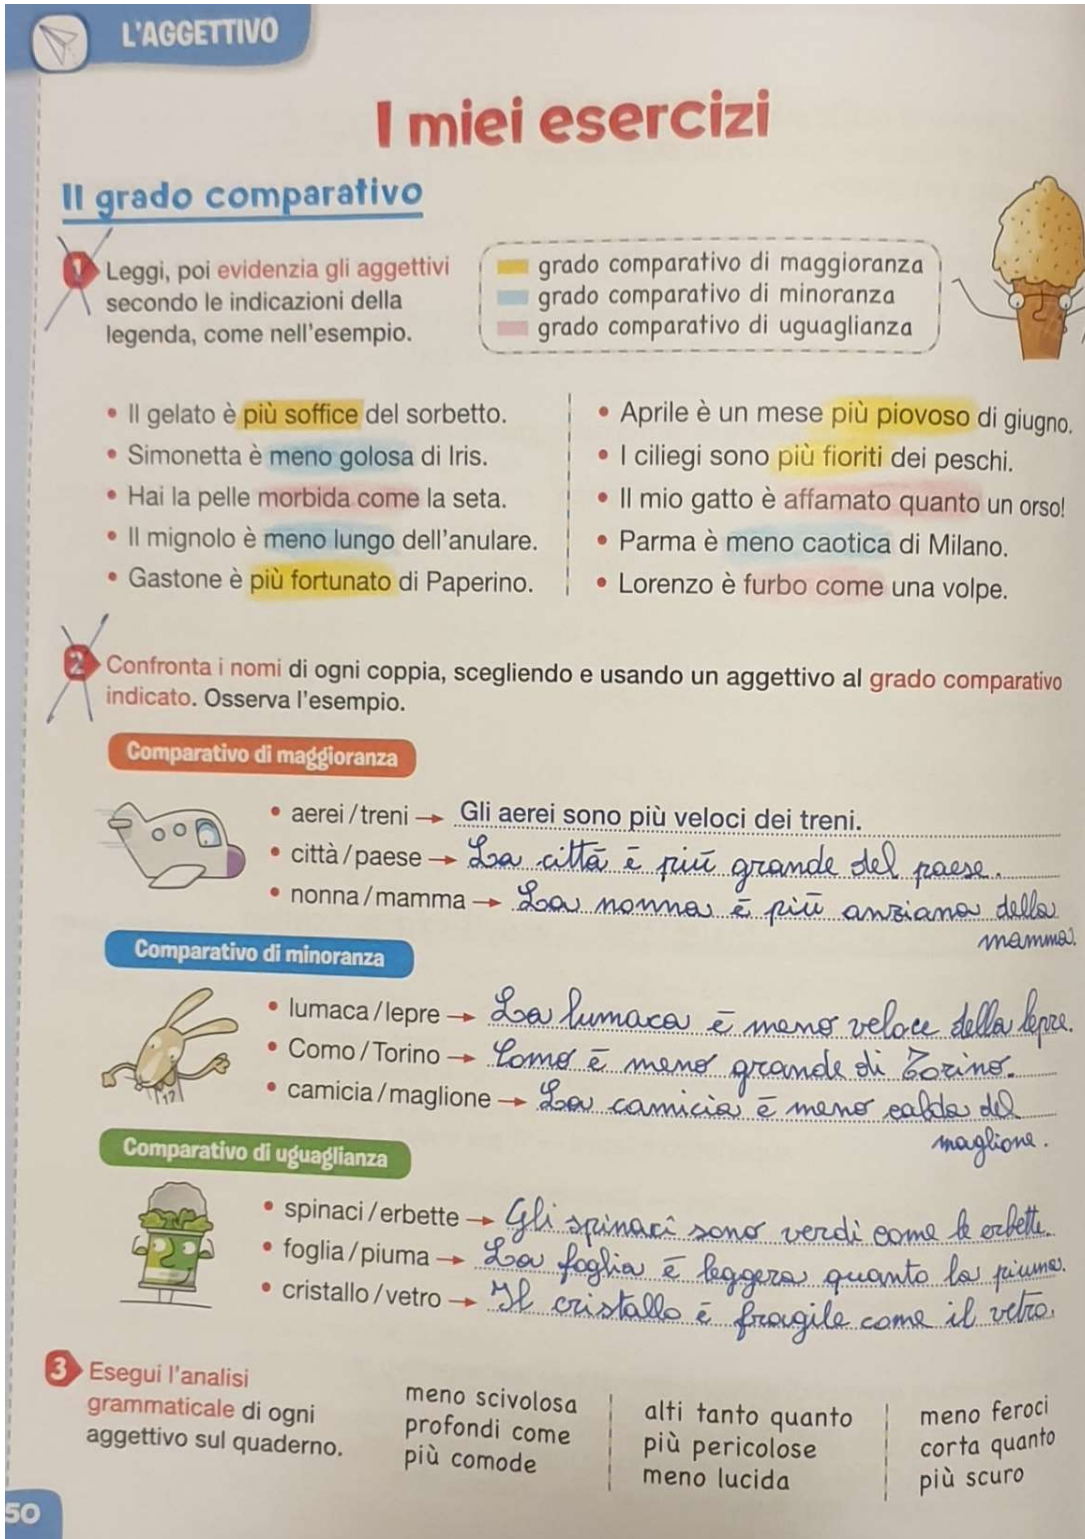 L'AGGETTIVO
I miei esercizi
Il grado comparativo
1 Leggi, poi evidenzia gli aggettivi
secondo le indicazioni della
legenda, come nell'esempio.
grado comparativo di maggioranza
grado comparativo di minoranza
grado comparativo di uguaglianza
• Il gelato è più soffice del sorbetto.
• Simonetta è meno golosa di Iris.
• Hai la pelle morbida come la seta.
• Il mignolo è meno lungo dell'anulare.
• Gastone è più fortunato di Paperino.
• Aprile è un mese più piovoso di giugno.
• I ciliegi sono più fioriti dei peschi.
• Il mio gatto è affamato quanto un orso!
• Parma è meno caotica di Milano.
• Lorenzo è furbo come una volpe.
2 Confronta i nomi di ogni coppia, scegliendo e usando un aggettivo al grado comparativo
indicato. Osserva l'esempio.
Comparativo di maggioranza
• aerei / treni → Gli aerei sono più veloci dei treni.
• città / paese → La città è più grande del paese.
• nonna / mamma → La nonna è più anziana della
mamma.
Comparativo di minoranza
• lumaca / lepre → La lumaca è meno veloce della lepre.
• Como / Torino → Como è meno grande di Torino.
• camicia / maglione → La camicia è meno calda del
maglione.
Comparativo di uguaglianza
• spinaci / erbette → Gli spinaci sono verdi come le erbette.
• foglia / piuma → La foglia è leggera quanto la piuma.
• cristallo / vetro → Il cristallo è fragile come il vetro.
3 Esegui l'analisi
grammaticale di ogni
aggettivo sul quaderno.
meno scivolosa
profondi come
più comode
alti tanto quanto
più pericolose
meno lucida
meno feroci
corta quanto
più scuro
50